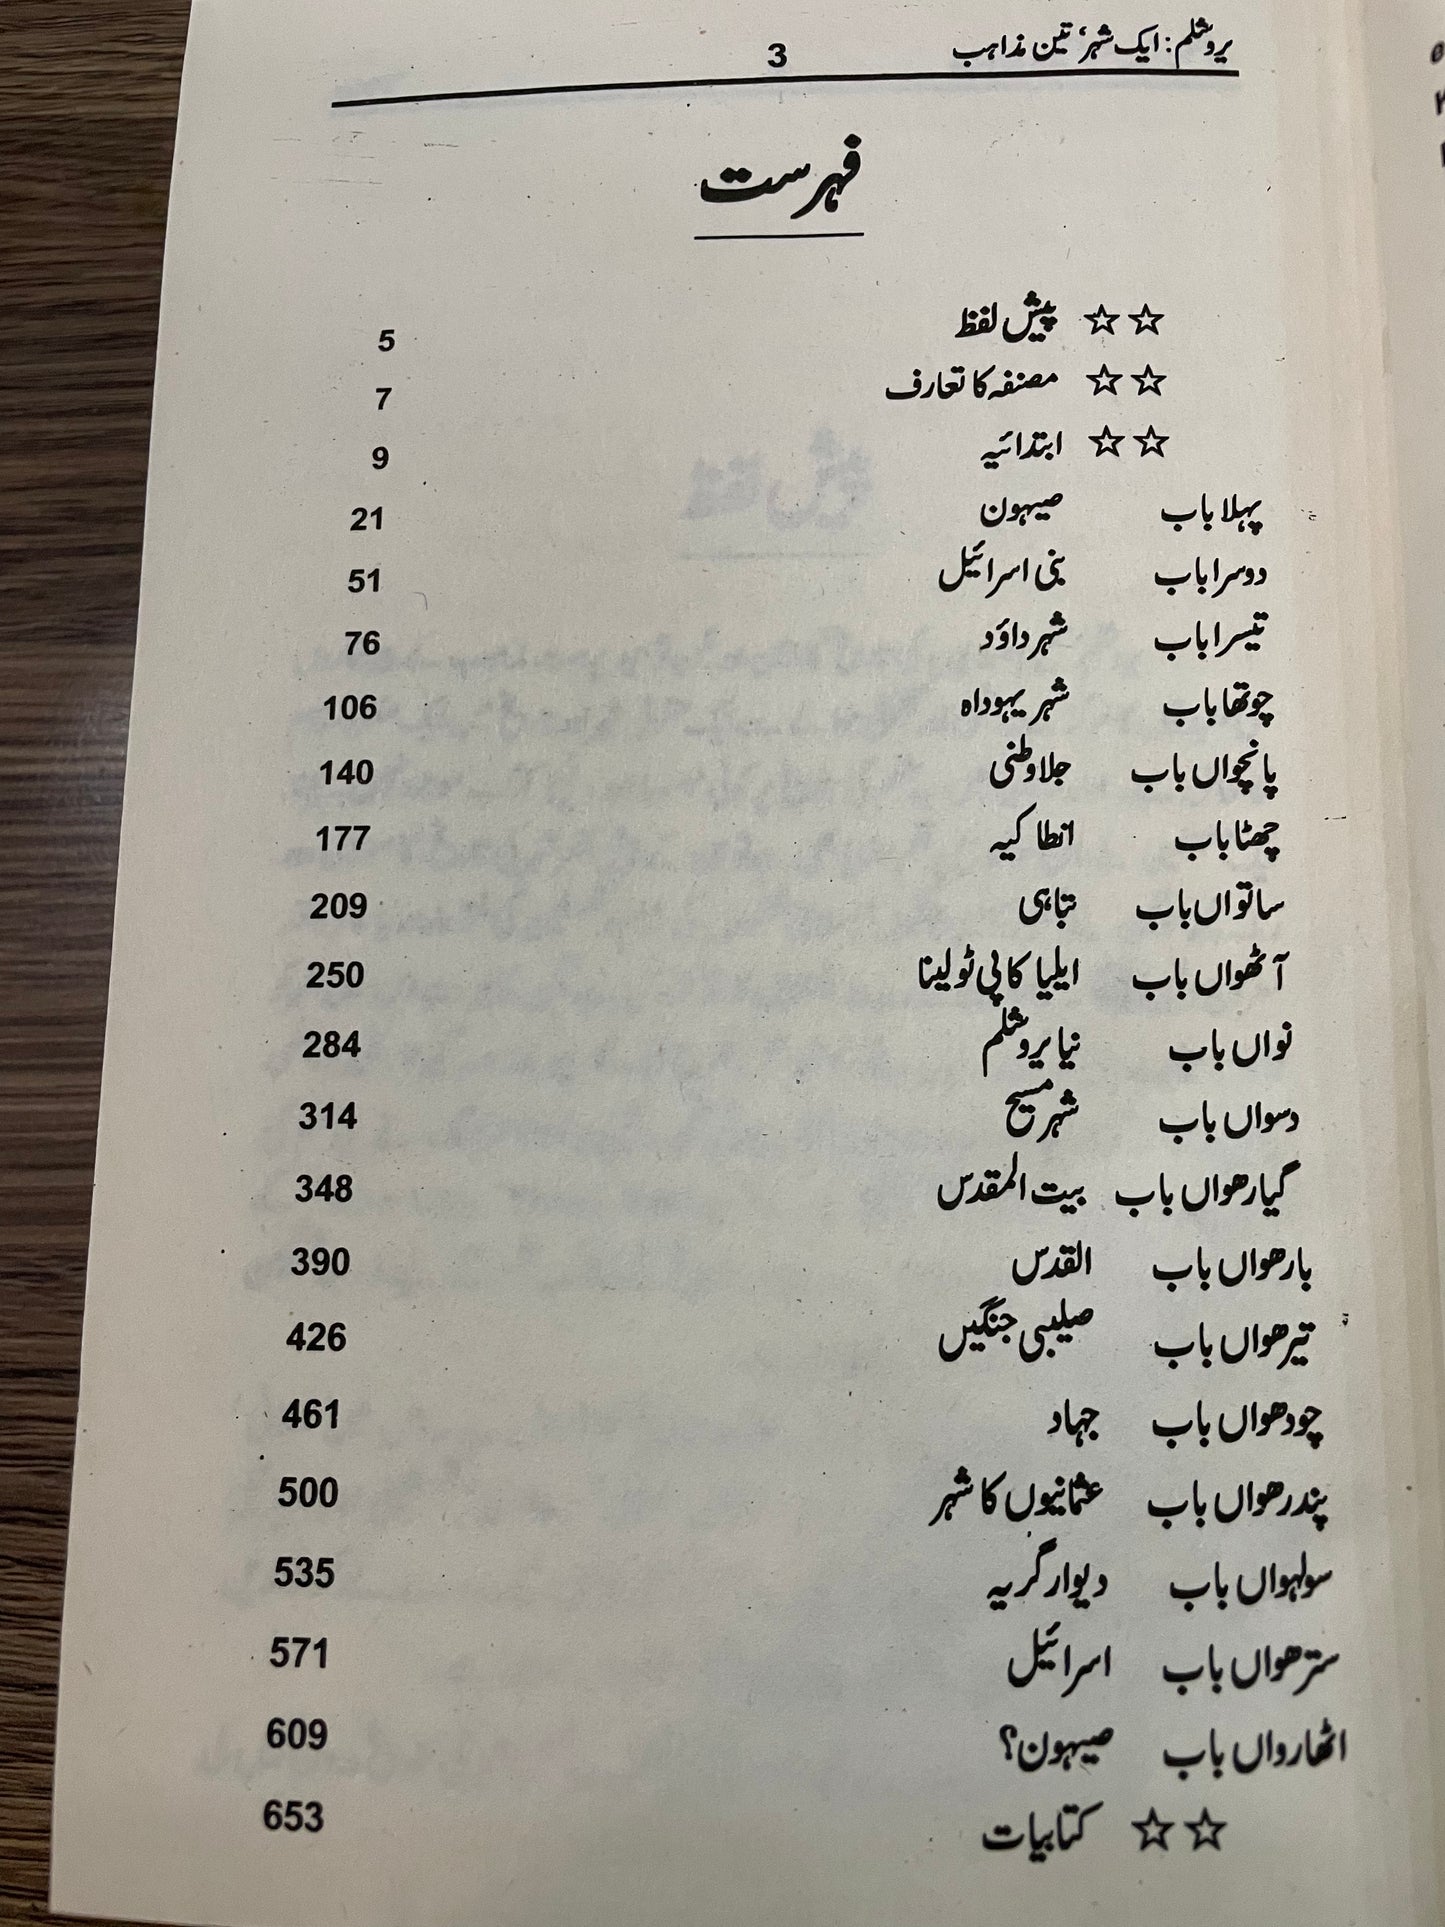 یروشلم: ایک شہر، تین مذاہب 3
فہرست
☆☆ پیش لفظ 5
☆☆ مصنفہ کا تعارف 7
☆☆ ابتدائیہ 9
پہلا باب صیہون 21
دوسرا باب بنی اسرائیل 51
تیسرا باب شہر داؤد 76
چوتھا باب شہر یہوداہ 106
پانچواں باب جلاوطنی 140
چھٹا باب انطاکیہ 177
ساتواں باب تباہی 209
آٹھواں باب ایلیا کاپی ٹولینا 250
نواں باب نیا یروشلم 284
دسواں باب شہر مسیح 314
گیارھواں باب بیت المقدس 348
بارھواں باب القدس 390
تیرھواں باب صلیبی جنگیں 426
چودھواں باب جہاد 461
پندرھواں باب عثمانیوں کا شہر 500
سولہواں باب دیوار گریہ 535
سترھواں باب اسرائیل 571
اٹھارواں باب صیہون؟ 609
☆☆ کتابیات 653